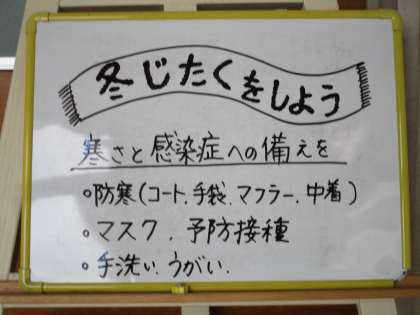 冬じたくをしよう
寒さと感染症への備えを
○防寒(コート、手袋、マフラー、中着)
○マスク、予防接種
○手洗い、うがい、